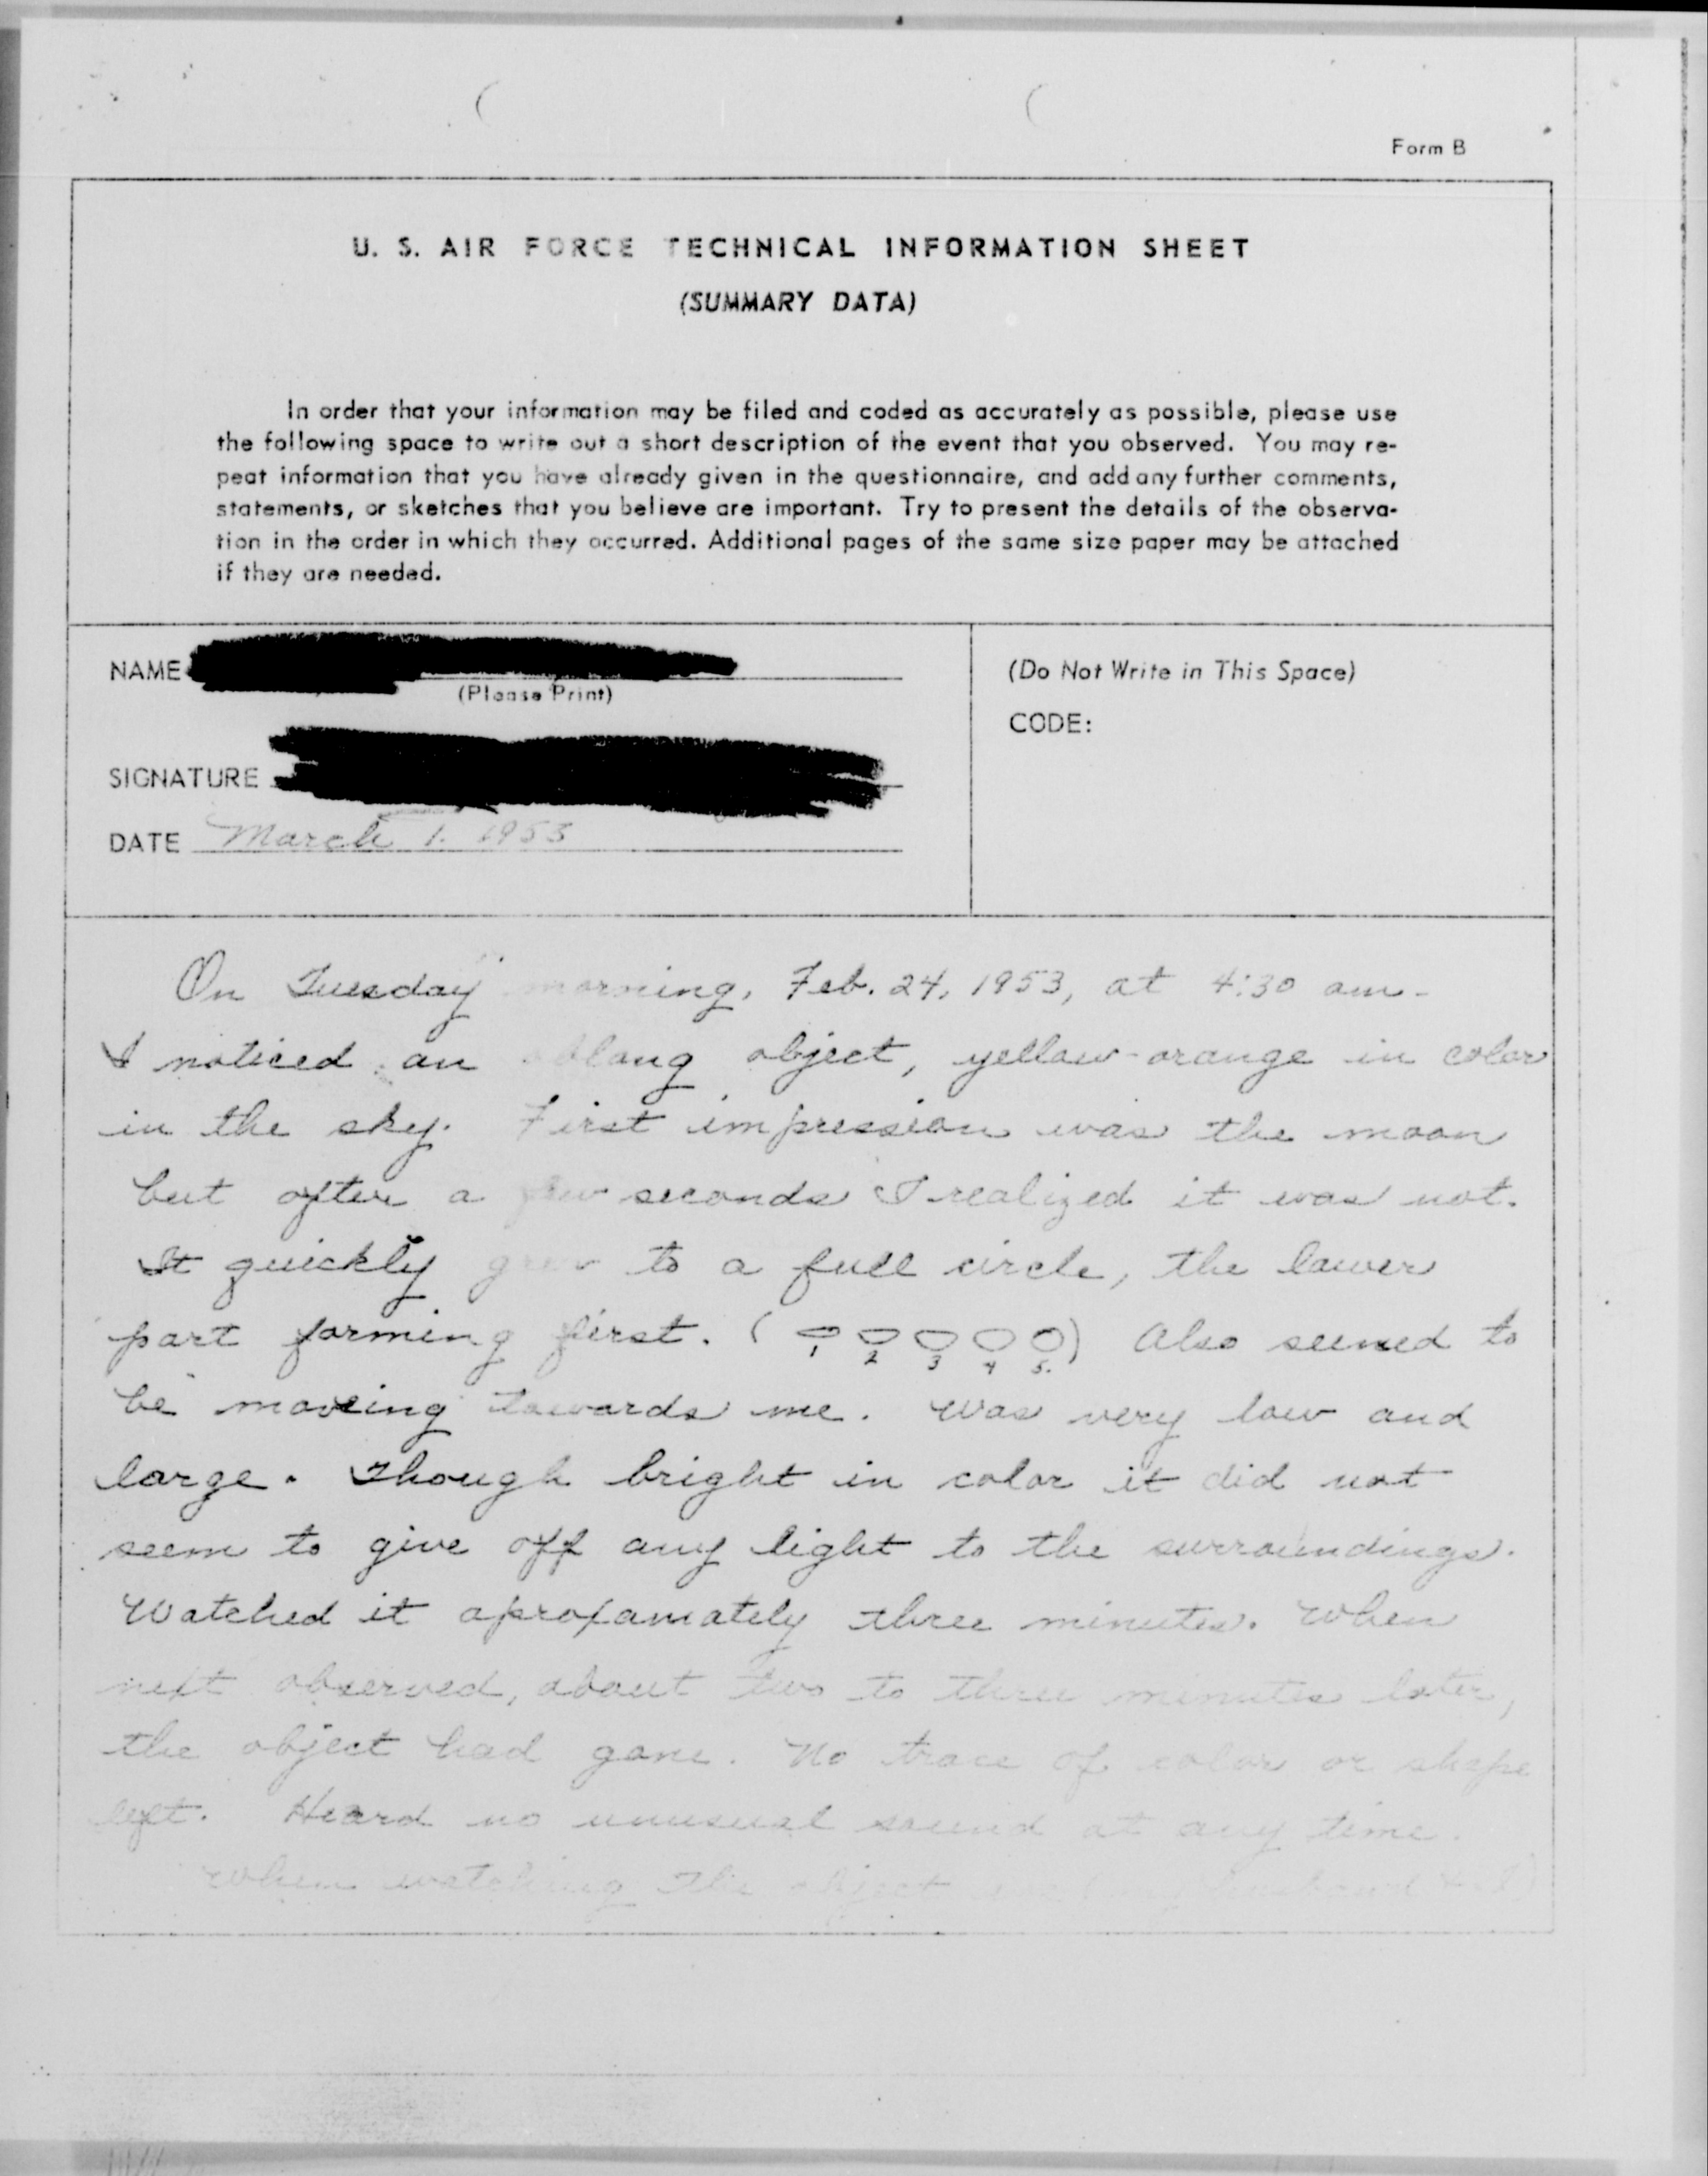 Form B
U. S. AIR FORCE TECHNICAL INFORMATION SHEET
(SUMMARY DATA)
In order that your information may be filed and coded as accurately as possible, please use
the following space to write out a short description of the event that you observed. You may re-
peat information that you have already given in the questionnaire, and add any further comments,
statements, or sketches that you believe are important. Try to present the details of the observa-
tion in the order in which they occurred. Additional pages of the same size paper may be attached
if they are needed.
NAME
(Please Print)
SIGNATURE
DATE March 1. 1953
(Do Not Write in This Space)
CODE:
On Tuesday morning, Feb. 24, 1953, at 4:30 am-
I noticed an oblong object, yellow-orange in color
in the sky. First impression was the moon
but after a few seconds I realized it was not.
It quickly grew to a full circle, the lower
part forming first. ( 1 2 3 4 5. ) Also seemed to
be moveing towards me. Was very low and
large. Though bright in color it did not
seem to give off any light to the surroundings.
Watched it aproxamately three minutes. When
next observed, about two to three minutes later,
the object had gone. No trace of color or shape
left. Heard no unusual sound at any time.
When watching the object we (my husband & I)